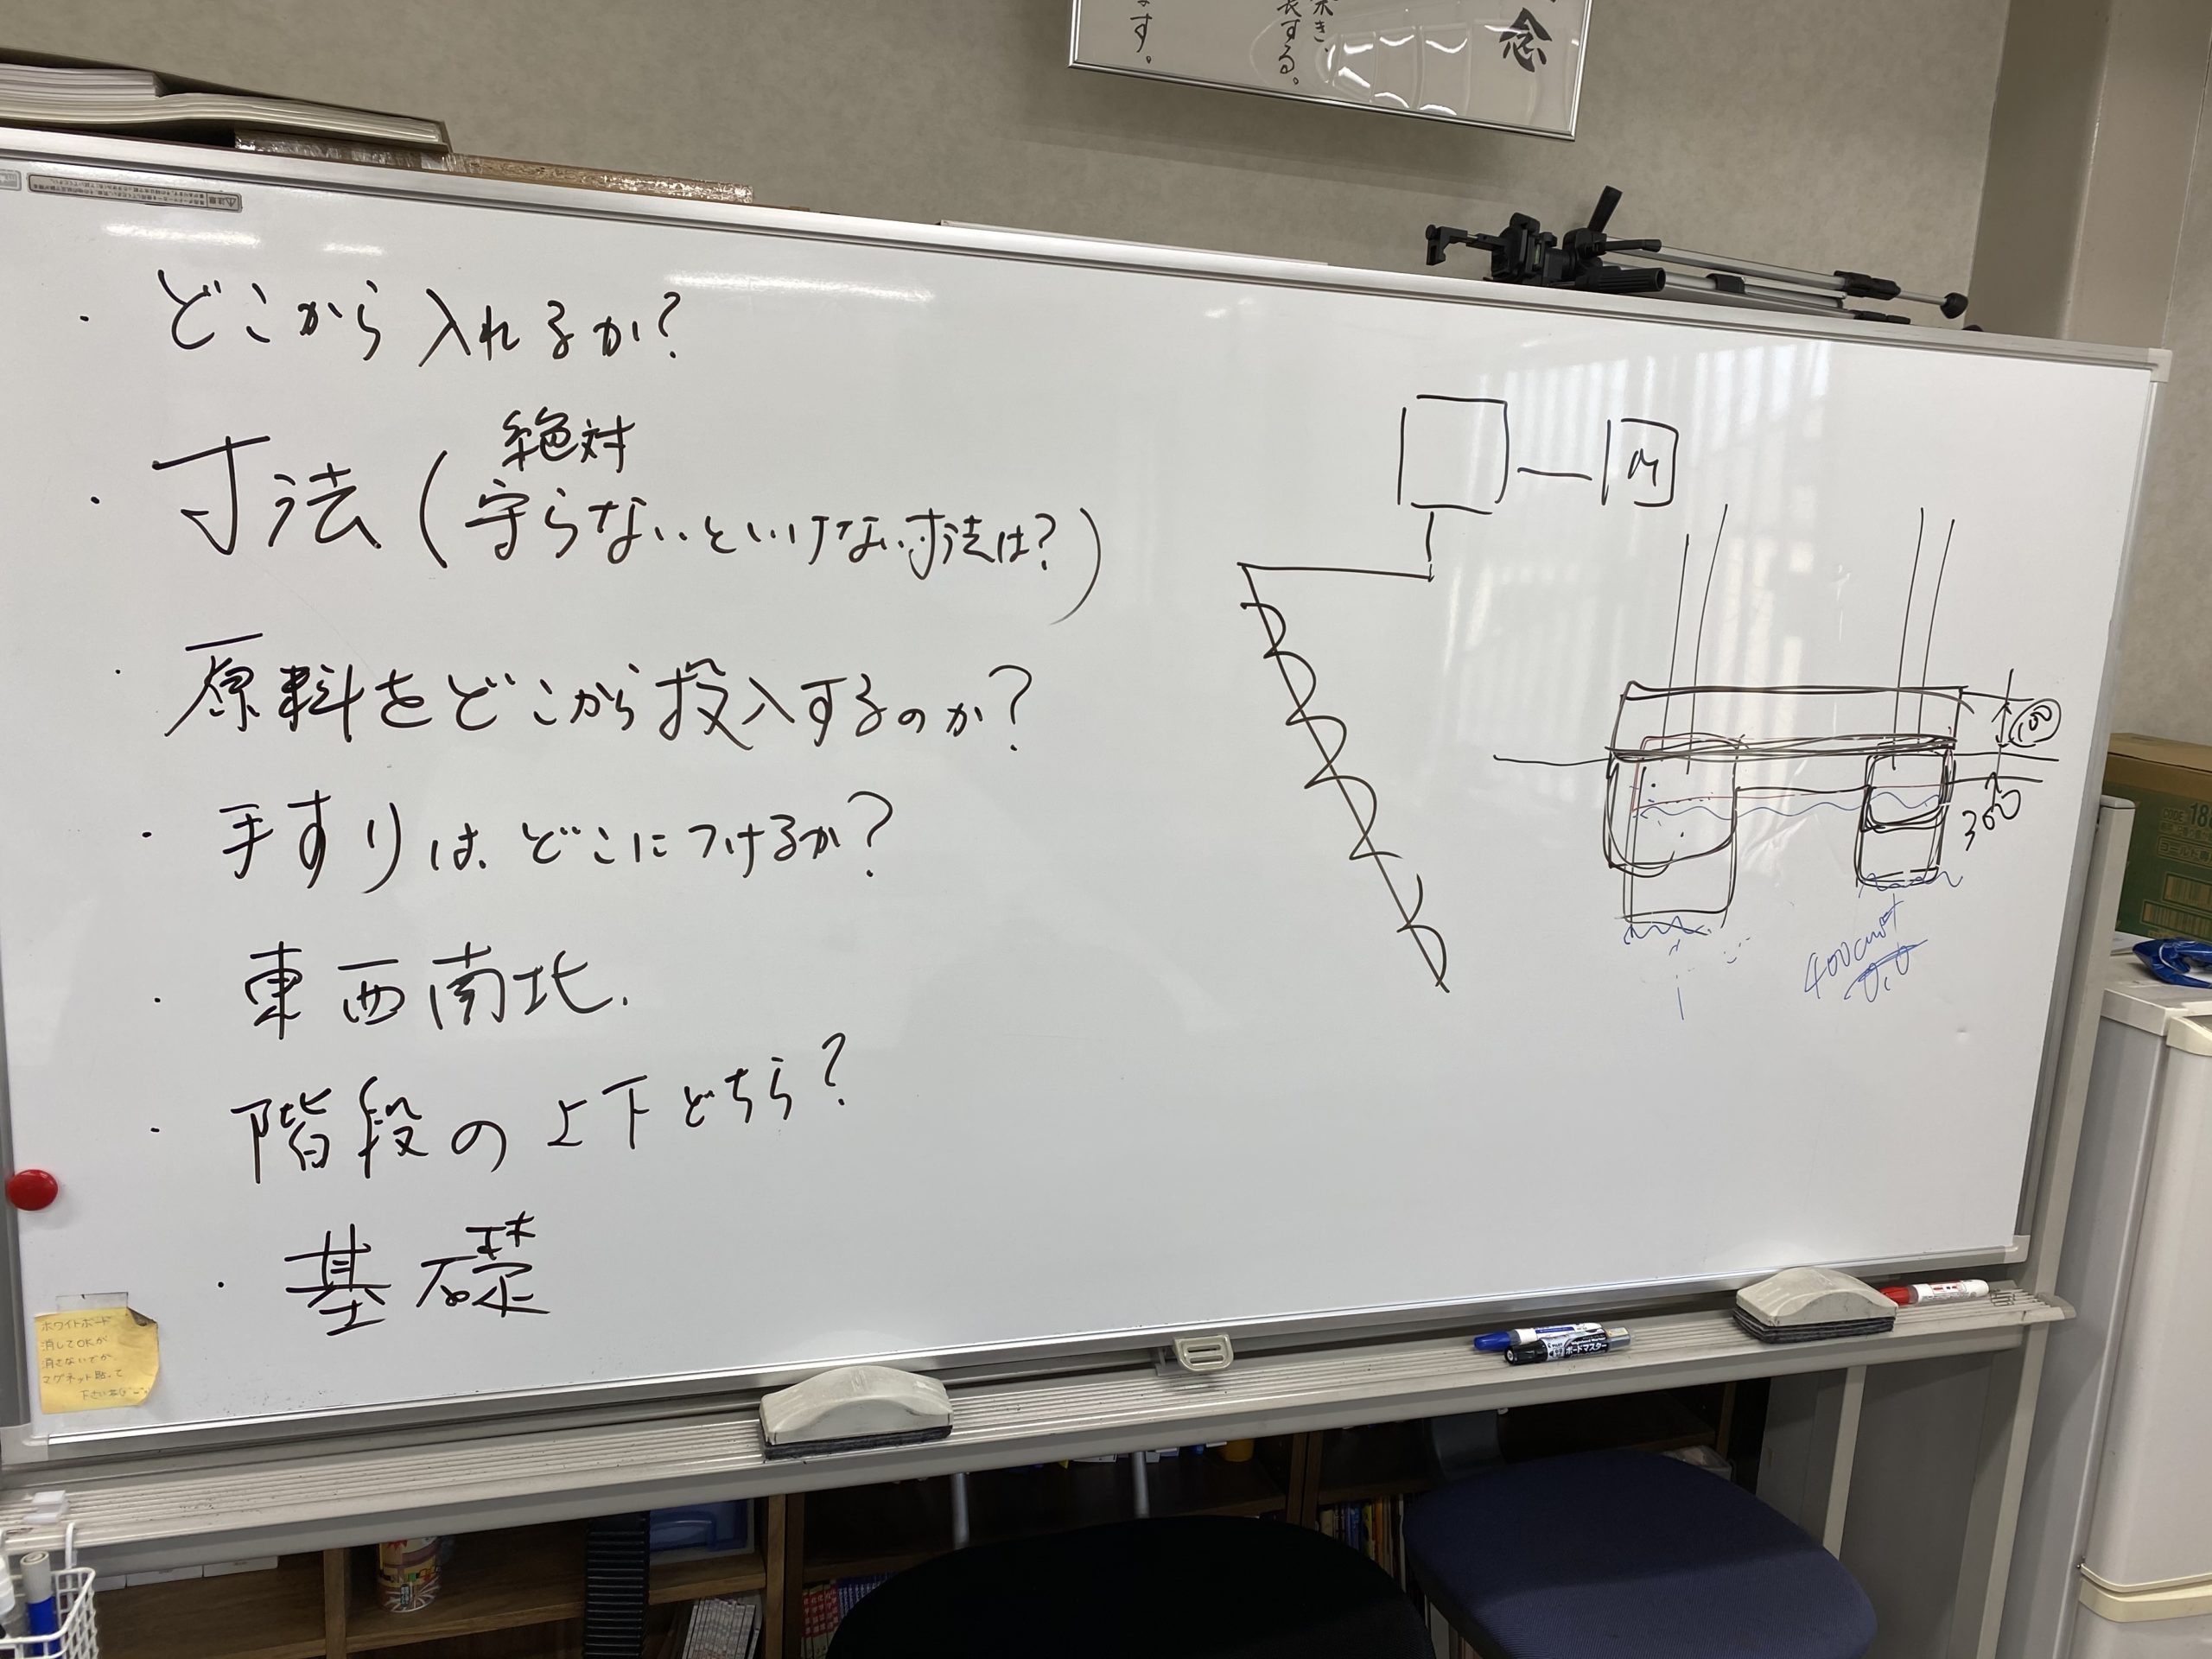 念
長する。
ます。
・どこから入れるか?
・寸法(絶対守らないといけない寸法は?)
・原料をどこから投入するのか?
・手すりは、どこにつけるか?
・東西南北.
・階段の上下どちら?
・基礎
M
100
300
ホワイトボード
消してOKか
消さないでか
マグネット貼って
下さい
ボードマスター